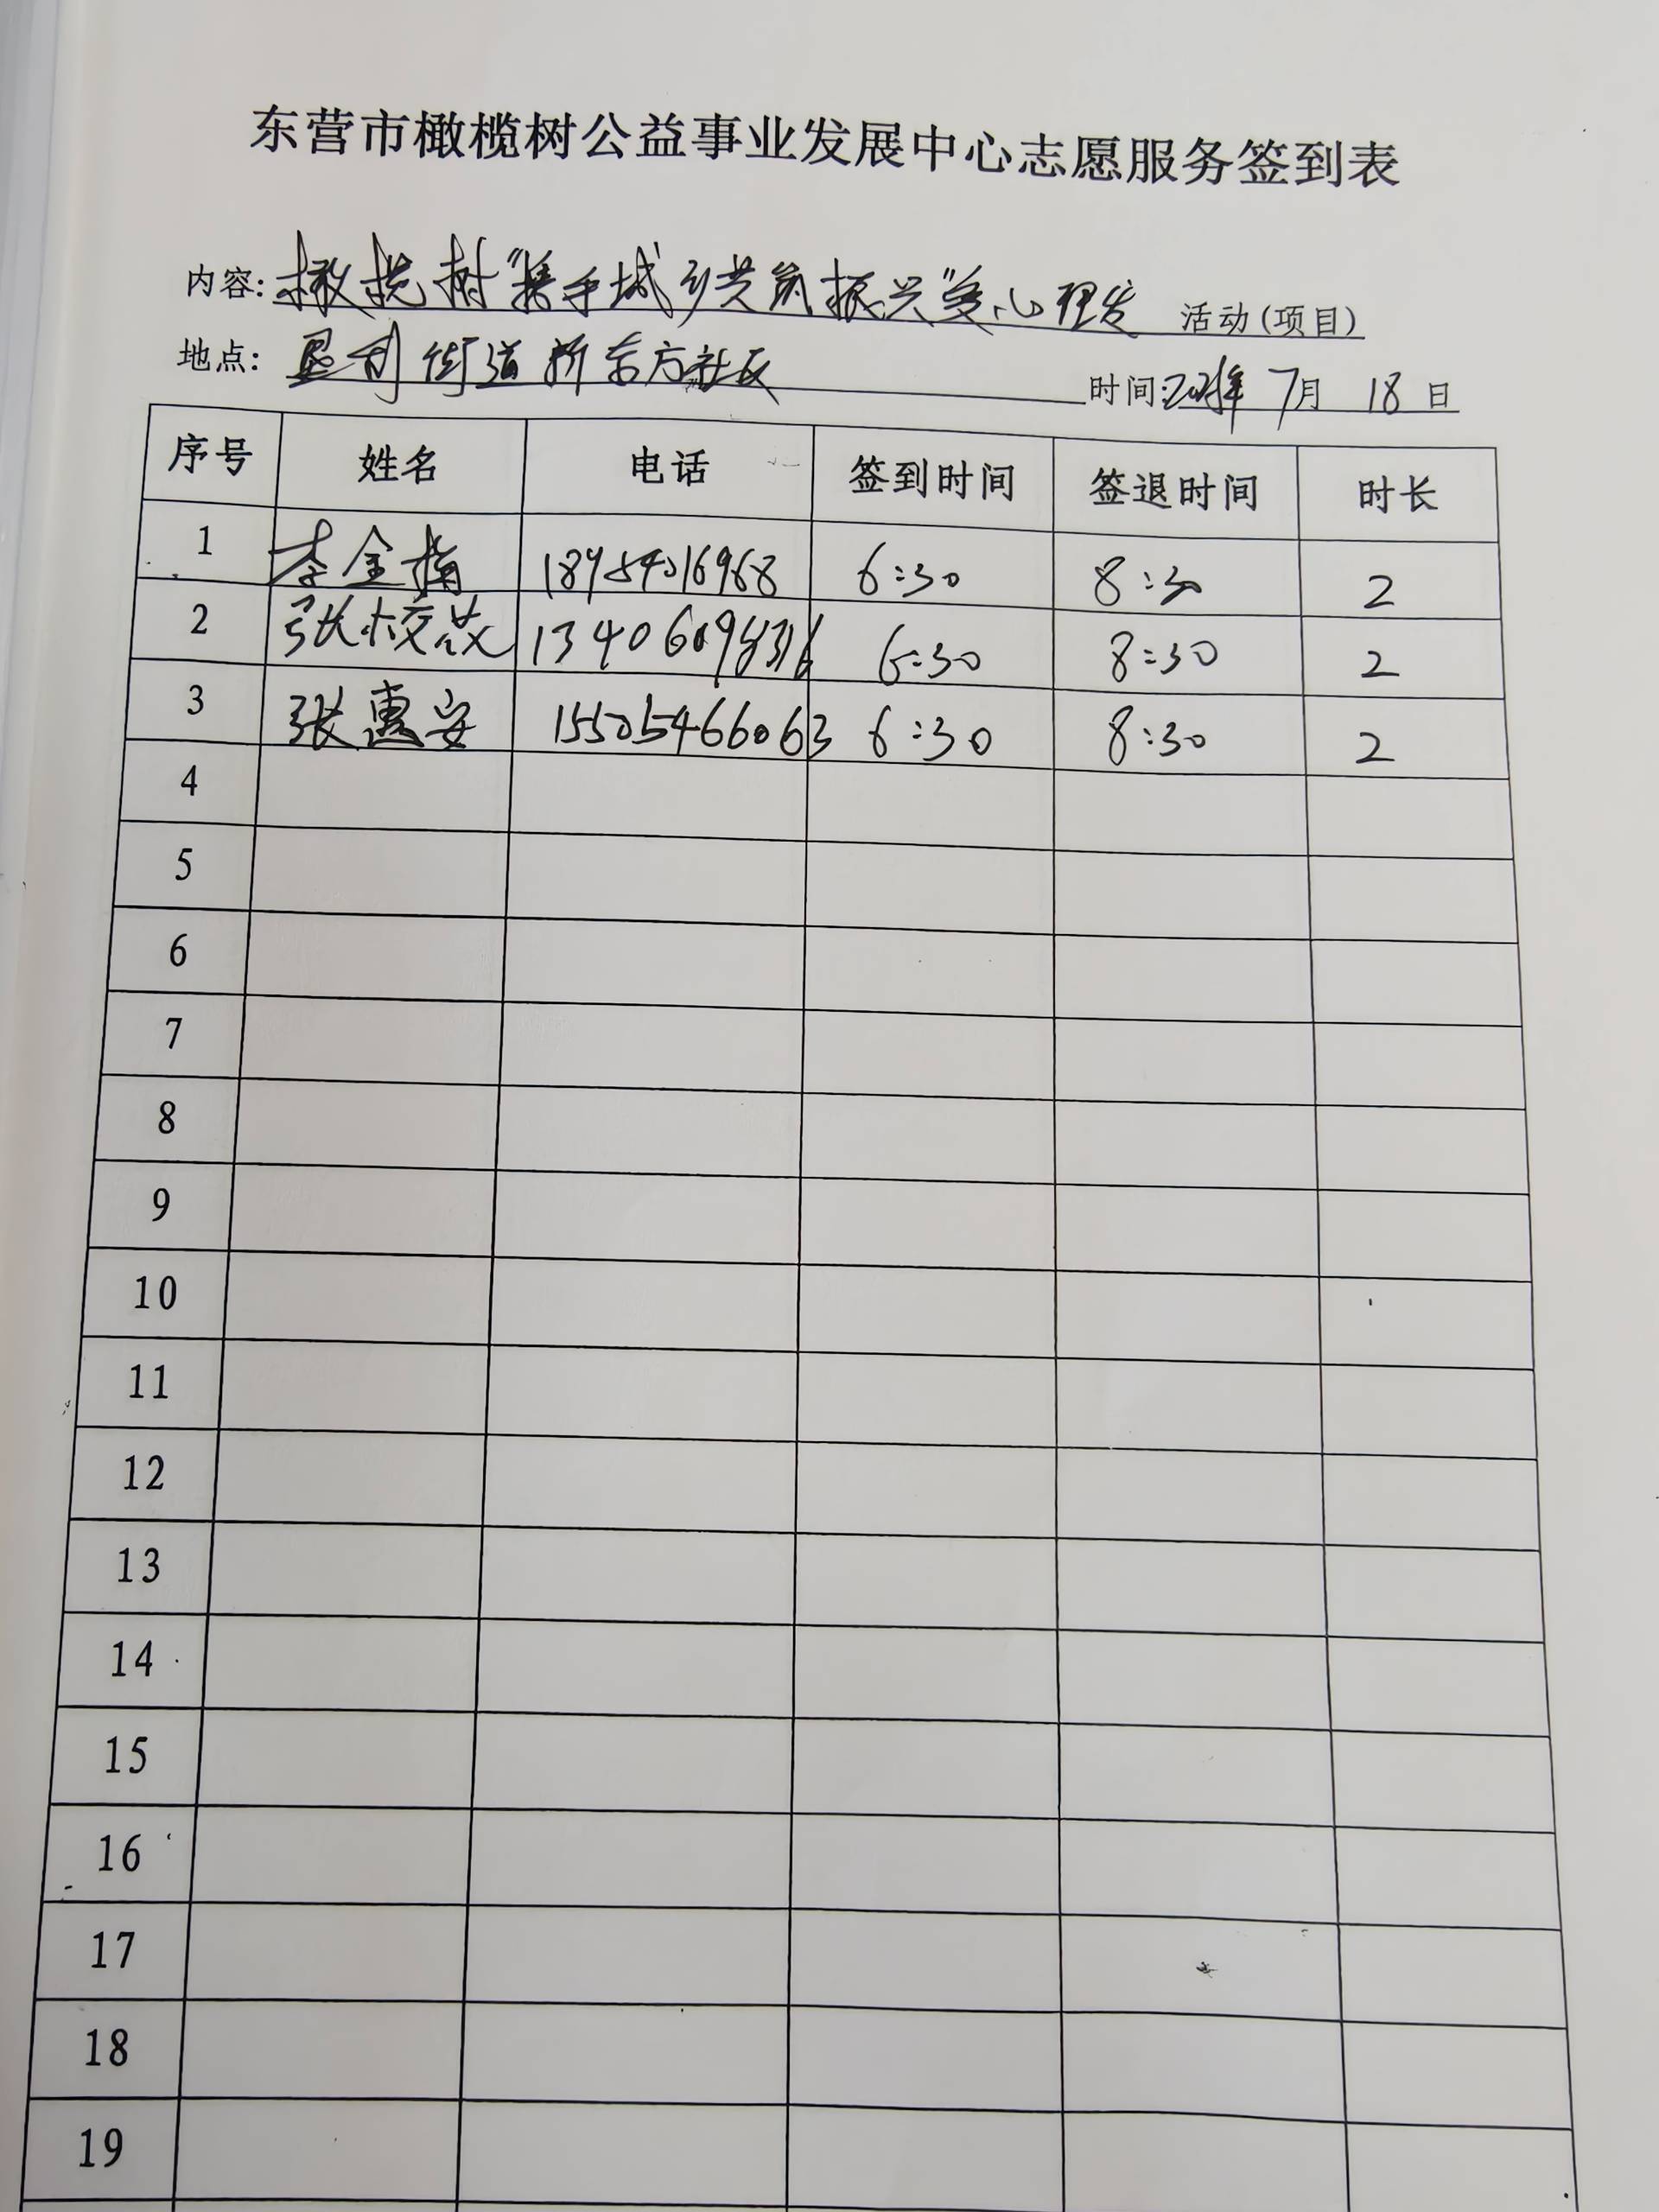 东营市橄榄树公益事业发展中心志愿服务签到表
内容: 橄榄树"携手城乡共筑振兴"爱心理发 活动(项目)
地点: 垦利街道新东方社区 时间: 年 7月 18日
序号 姓名 电话 签到时间 签退时间 时长
1 李金梅 18954016968 6:30 8:30 2
2 张校 6:30 8:30 2
3 张惠安 15505466063 6:30 8:30 2
4
5
6
7
8
9
10
11
12
13
14
15
16
17
18
19